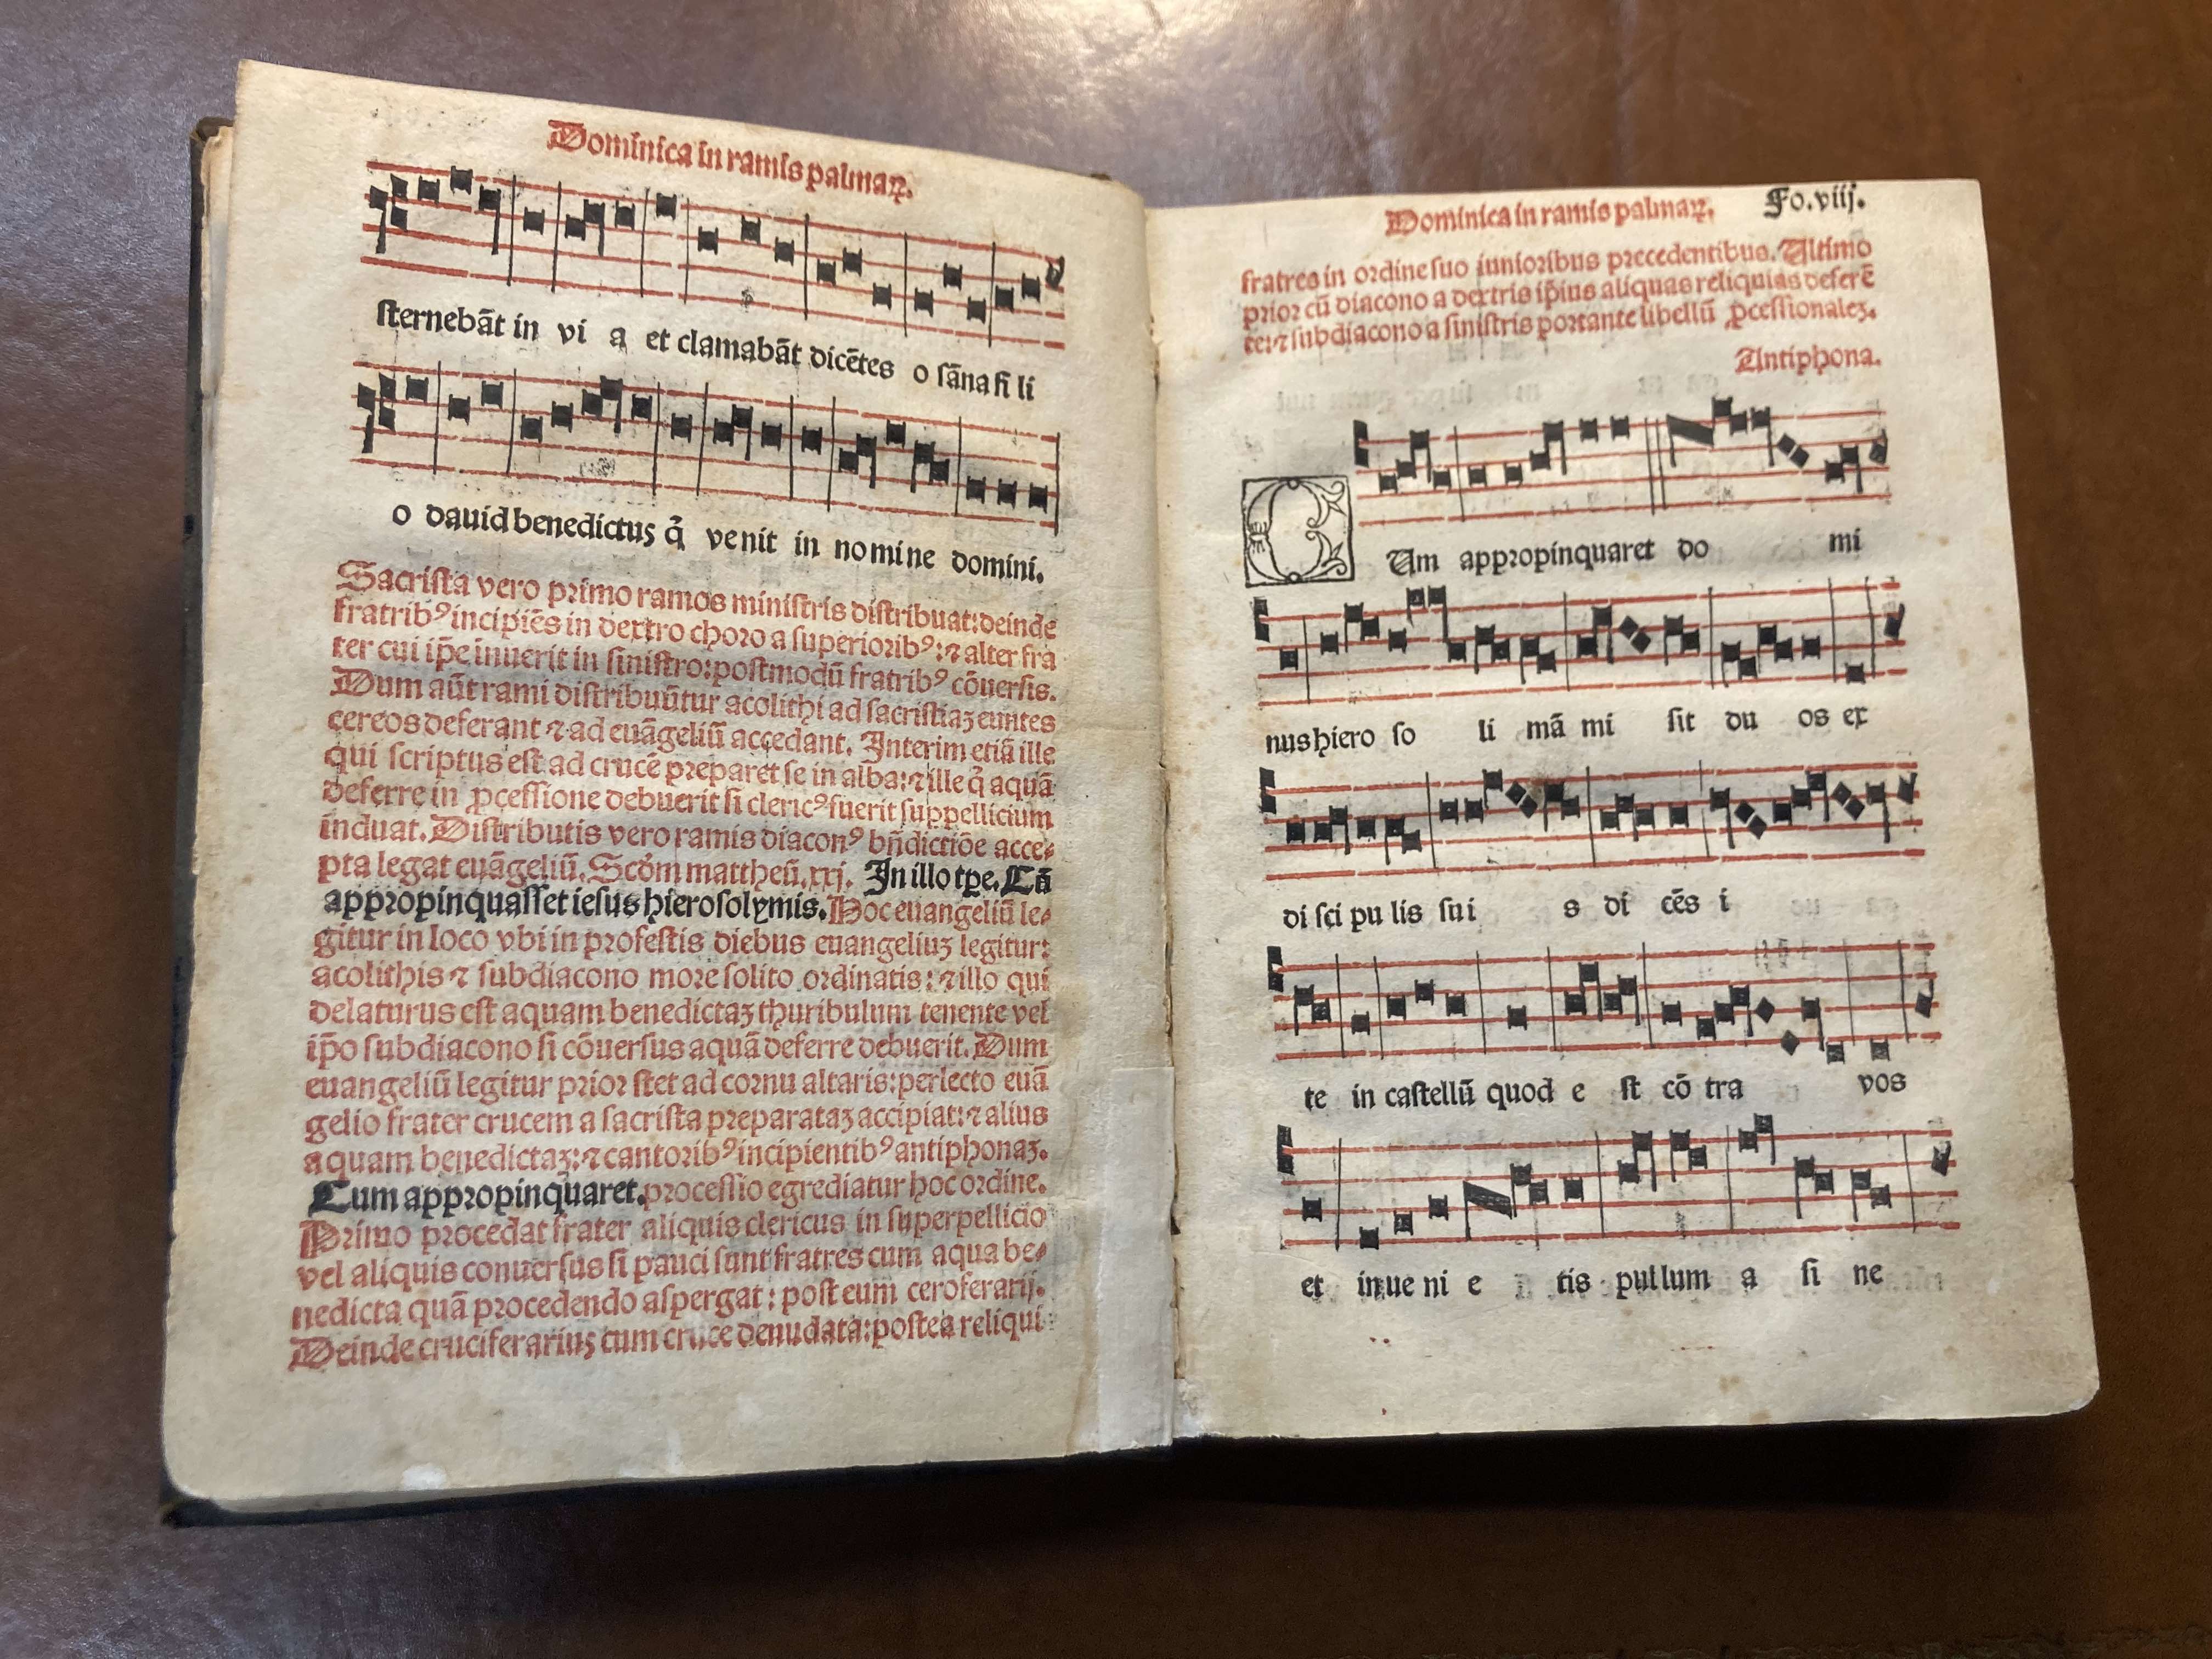 Dominica in ramis palmaꝝ.
ſternebāt in vi a et clamabāt dicētes o ſāna fi li
o dauid benedictus q̇ venit in nomine domini.
Sacriſta vero primo ramos miniſtris diſtribuat: deinde
fratribꝰ incipiēs in dextro choro a ſuperioribꝰ: ⁊ alter fra
ter cui ip̄e inuerit in ſiniſtro: poſtmodū fratribꝰ cōuerſis.
Dum aūt rami diſtribuūtur acolithi ad ſacriſtiaꝫ euntes
cereos deferant ⁊ ad euāgeliū accedant. Interim etiā ille
qui ſcriptus eſt ad crucē preparet ſe in alba: ⁊ ille q̇ aquā
deferre in ꝓceſſione debuerit ſi clericꝰ fuerit ſuppellicium
induat. Diſtributis vero ramis diaconꝰ bn̄dictiōe acce⸗
pta legat euāgeliū. Scd̄m mattheū. xxj. In illo tp̄e. Cū
appropinquaſſet ieſus hieroſolymis. Hoc euangeliū le⸗
gitur in loco vbi in profeſtis diebus euangeliuꝫ legitur:
acolithis ⁊ ſubdiacono more ſolito ordinatis: ⁊ illo qui
delaturus eſt aquam benedictaꝫ thuribulum tenente vel
ip̄o ſubdiacono ſi cōuerſus aquā deferre debuerit. Dum
euangeliū legitur prior ſtet ad cornu altaris: perlecto euā
gelio frater crucem a ſacriſta preparataꝫ accipiat: ⁊ alius
aquam benedictaꝫ: ⁊ cantoribꝰ incipientibꝰ antiphonaꝫ.
Cum appropinquaret. proceſſio egrediatur hoc ordine.
Primo procedat frater aliquis clericus in ſuperpellicio
vel aliquis conuerſus ſi pauci ſunt fratres cum aqua be⸗
nedicta quā procedendo aſpergat: poſt eum ceroferarij.
Deinde cruciferarius cum cruce denudata: poſtea reliqui
Dominica in ramis palmaꝝ. Fo. viij.
fratres in ordine ſuo iunioribus precedentibus. Ultimo
prior cū diacono a dextris ip̄ius aliquas reliquias deferē
te: ⁊ ſubdiacono a ſiniſtris portante libellū ꝓceſſionaleꝫ.
Antiphona.
CUm appropinquaret do mi
nus hiero ſo li mā mi ſit du os ex
di ſci pu lis ſui s di cēs i
te in caſtellū quod e ſt cō tra vos
et inue ni e tis pullum a ſi ne